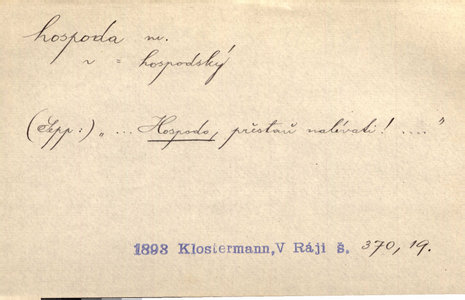 hospoda m.
~ = hospodský
(Sepp:) „ ... Hospodo, přestaň nalévati! .... "
1893 Klostermann, V Ráji š. 370, 19.